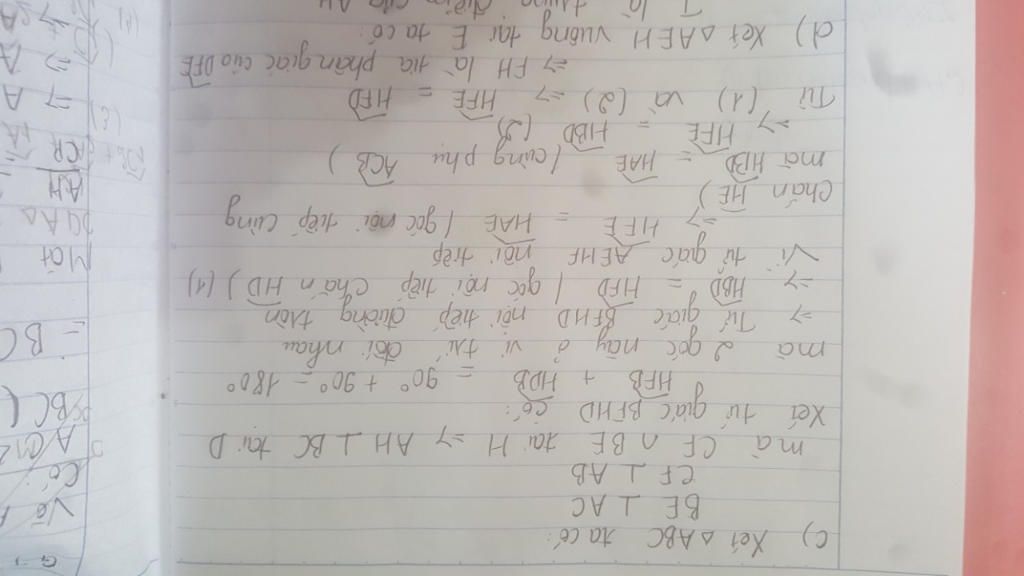 c) Xét △ABC ta có:
BE ⊥ AC
CF ⊥ AB
mà CF ∩ BE tại H => AH ⊥ BC tại D
Xét tứ giác BFHD có:
HFB + HDB = 90° + 90° = 180°
mà 2 góc này ở vị trí đối nhau
=> Tứ giác BFHD nội tiếp đường tròn
=> HBD = HFD (góc nội tiếp chắn HD) (1)
Vì tứ giác AEHF nội tiếp
=> HFE = HAE (góc nội tiếp cùng
chắn HE)
mà HBD = HAE (cùng phụ ACB)
=> HFE = HBD (2)
Từ (1) và (2) => HFE = HFD
=> FH là tia phân giác của DFE
d) Xét △AEH vuông tại E ta có:
I là trung điểm của AH
G
Vẽ
Có
BC (
= BC
Một
AH
CR
=> A
=> A
(3)